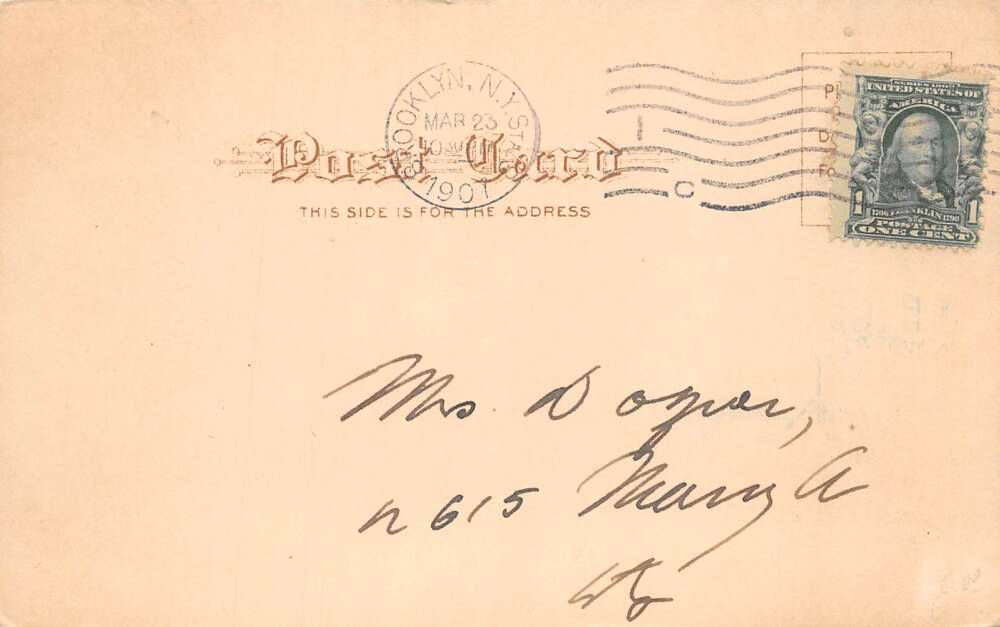 BROOKLYN, N.Y. STA.
MAR 23
1907
I
C
SERIES 1902
UNITED STATES OF
AMERICA
1 1
1706 FRANKLIN 1790
POSTAGE
ONE CENT
Post Card
THIS SIDE IS FOR THE ADDRESS
Mrs.
615 Mary A